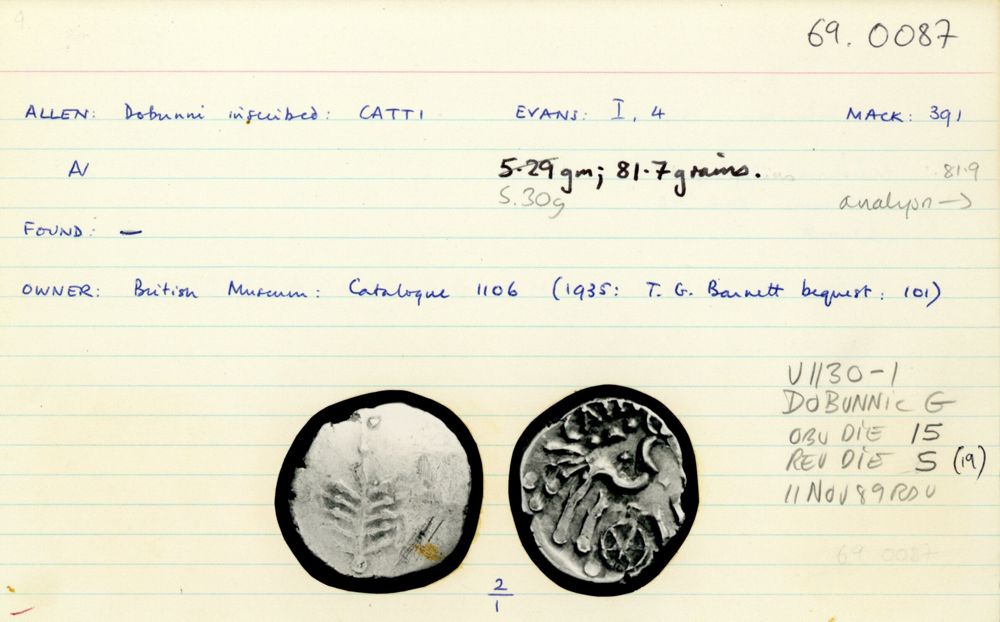 9.
69. 0087
ALLEN: Dobunni inscribed: CATTI EVANS: I, 4 MACK: 391
AV 5.29 gm; 81.7 grains. 81.9
5.30g analysn →
FOUND: —
OWNER: British Museum: Catalogue 1106 (1935: T. G. Barnett bequest: 101)
V1130-1
DOBUNNIC G
OBV DIE 15
REV DIE 5 (19)
11 NOV 89 RDV
69 0087
2/1